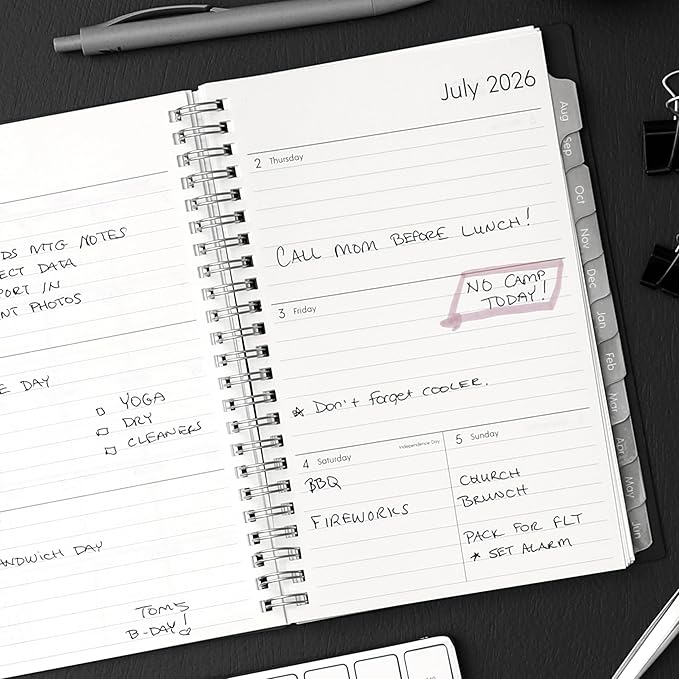 DS MTG NOTES
ECT DATA
PORT IN
NT PHOTOS
E DAY
YOGA
DRY
CLEANERS
ANDWICH DAY
TOM'S
B-DAY!
July 2026
2 Thursday
CALL MOM BEFORE LUNCH!
3 Friday
NO CAMP
TODAY!
* Don't forget COOLER.
4 Saturday
Independence Day
BBQ
FIREWORKS
5 Sunday
CHURCH
BRUNCH
PACK FOR FLT
* SET ALARM
Aug
Sep
Oct
Nov
Dec
Jan
Feb
Mar
Apr
May
Jun